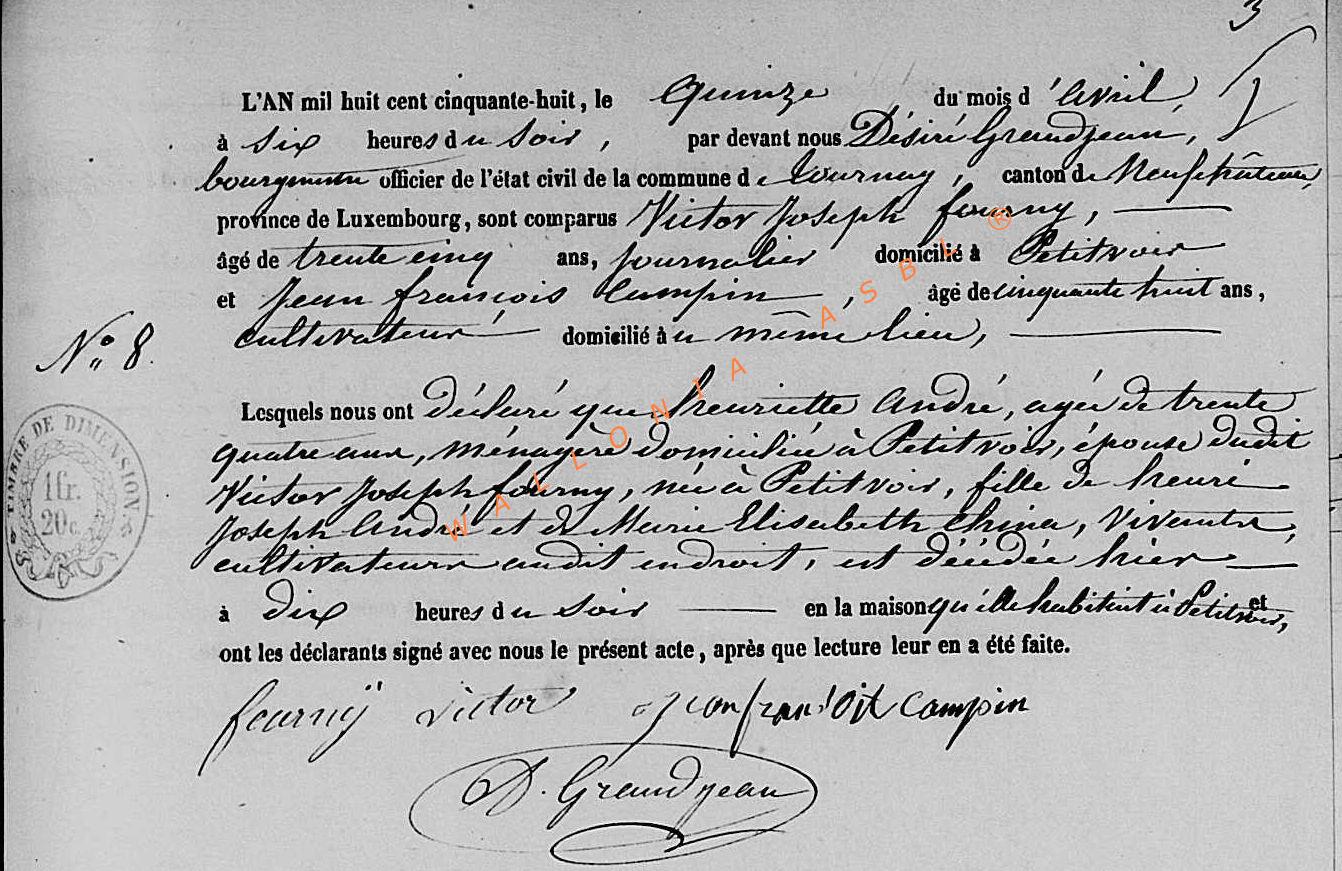 3
L'AN mil huit cent cinquante-huit, le Quinze du mois d'avril,
à six heures du soir, par devant nous Désiré Grandjean,
bourgmestre officier de l'état civil de la commune de Tournay, canton de Neufchâteau,
province de Luxembourg, sont comparus Victor Joseph fourny,
âgé de trente cinq ans, journalier domicilié à Petitvoir
et Jean françois Campin, âgé de cinquante huit ans,
cultivateur domicilié au même lieu,
N° 8.
Lesquels nous ont déclaré que henriette André, agée de trente
quatre ans, ménagère domiciliée à Petitvoir, épouse dudit
Victor Joseph fourny, née à Petitvoir, fille de henri
Joseph André et de Marie Elisabeth China, vivants,
cultivateurs audit endroit, est décédée hier
à dix heures du soir en la maison qu'elle habitait à Petitvoir, et
ont les déclarants signé avec nous le présent acte, après que lecture leur en a été faite.
fourny victor jean Campin
D. Grandjean
TIMBRE DE DIMENSION
1fr.
20c.
WALLONIA ASBL ®